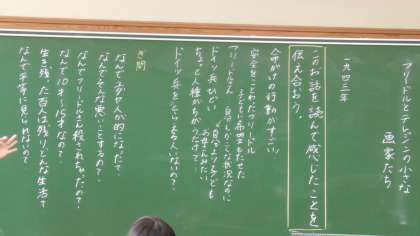 フリードルとテレジンの小さな
画家たち
一九四三年
このお話を読んで感じたことを
伝え合おう。
命がけの行動がすごい
安全をことわったフリードル
子どもに希望をもたせた
フリードルさん
自分もこんな状況なのに
自分より子ども
お母さんみたい
ドイツ兵ひどい
ちょっと人種がちがうだけで
ドイツ兵をとらえる人いないの?
ぎ問
なんでユダヤ人が的になった?
なんでそんな悪いことするの?
なんでフリードルさん殺されちゃったの?
なんで10才〜15才なの?
生き残った百人は残りどんな生活?
なんで平等に見られないの?